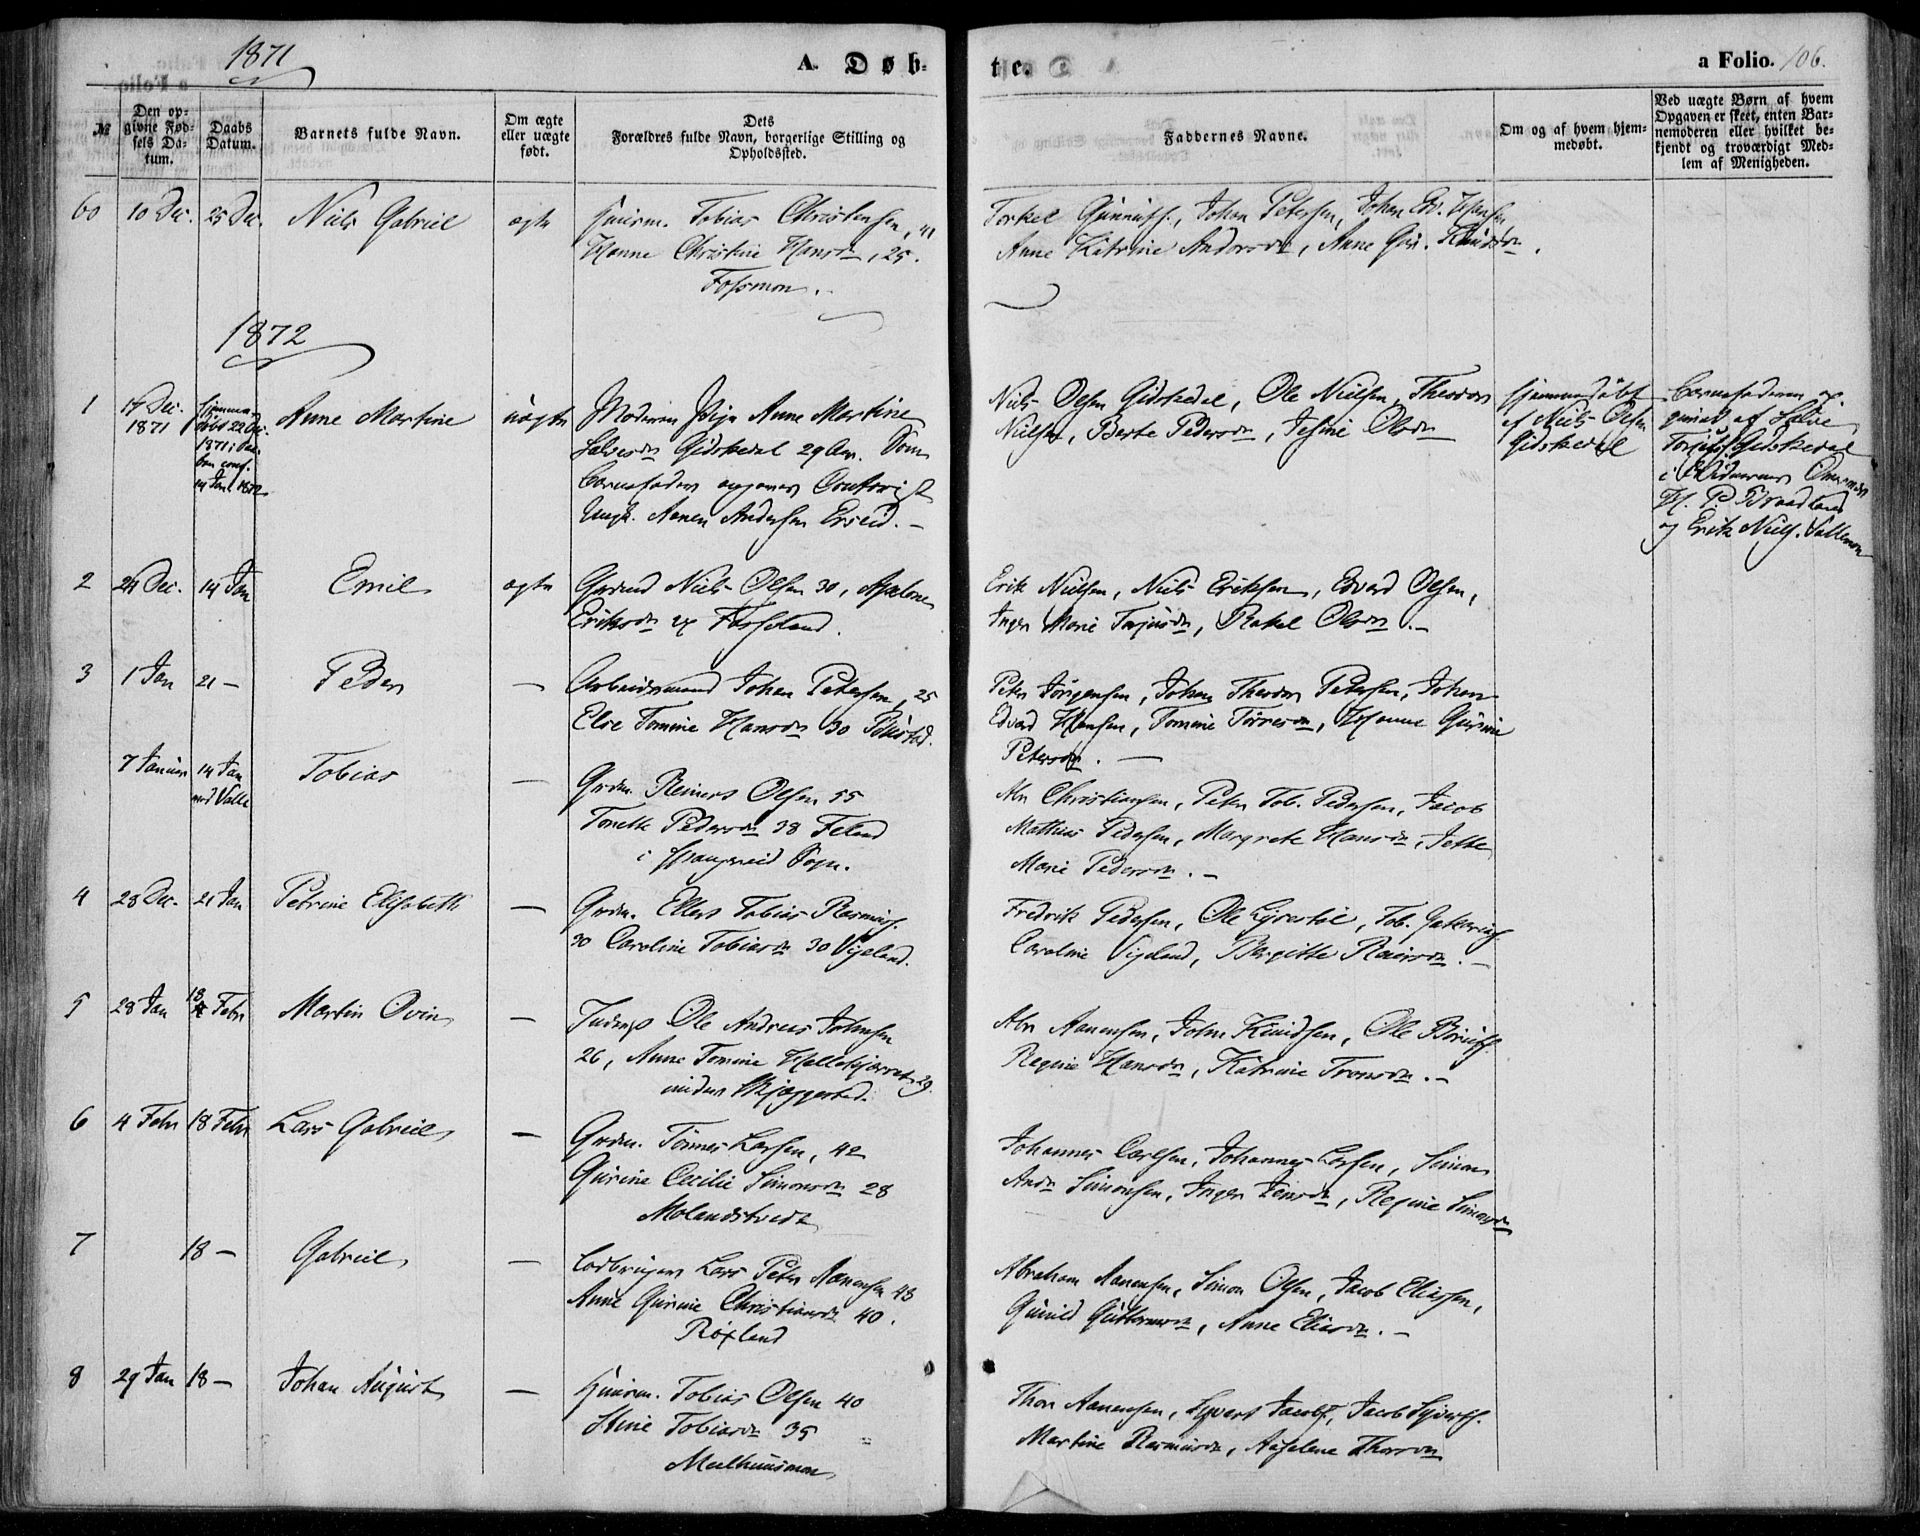 1871
A. Døb-
te.
a Folio. 106.
№
Den op-
givne Fød-
sels Da-
tum.
Daabs
Datum.
Barnets fulde Navn.
Om ægte
eller uægte
født.
Dets
Forældres fulde Navn, borgerlige Stilling og
Opholdssted.
Faddernes Navne.
Om og af hvem hjem-
medøbt.
Ved uægte Børn af hvem
Opgaven er skeet, enten Bar-
nemoderen eller hvilket be-
kjendt og troværdigt Med-
lem af Menigheden.
60 10 Dec. 25 Dec. Niels Gabriel ægte Huusm. Tobias Christensen, 41
Hanne Christine Hansdr, 25.
Fossmon.
Torkel Gunnufs., Johan Petersen, Johan Ed. Hansen
Anne Katrine Andersdr, Anne Gur. Knudsdr.
1872
1 17 Dec.
1871
Hjemme-
døbt 22 Dec.
1871 i Daa-
ben conf.
14 Jan 1872
Anne Martine uægte Moderen Pige Anne Martine
Salvesdr Gidskedal 29 Aar. Som
Barnefader opgives
Ungk. Aanen Andersen Erseid. —
Niels Olsen Gidskedal, Ole Nielsen, Theodor
Nielsen, Berte Pedersdr, Jesine Olsdr
Hjemmedøbt
af Niels Olsen
Gidskedal
Barnefaderen op-
givet af Salve
Gidskedal
i Vidnernes
H. P. Braadland
og Erik Niels.
2 24 Dec. 14 Jan Emil ægte Grdmd Niels Olsen 30, Aselene
Eriksdr 27 Fasseland.
Erik Nielsen, Niels Eriksen, Edvard Olsen,
Inger Marie Torjusdr, Rakel Olsdr. —
3 1 Jan 21 — Peder — Arbeidsmand Johan Petersen, 25
Else Tomine Hansdr 30
Peter Jörgensen, Johan Theodor Pedersen, Johan
Edvard Hansen, Tomine Törresdr, Johanne Gurine
Petersdr. —
7 Januar 14 Jan
ved Valle
Tobias — Grdm. Reinert Olsen 55
Tonette Pedersdr 38 Feland
i Spangereid Sogn.
Abr Christiansen, Peter Tob. Pedersen, Jacob
Mathias Pedersen, Margrete Hansdr, Jette
Marie Pedersdr. —
4 28 Dec. 21 Jan Petrine Elisabeth — Grdm. Ellert Tobias Rasmus.
30 Caroline Tobiasdr 30 Vigeland.
Fredrik Pedersen, Ole, Tob.
Caroline Vigeland, Birgitte Reiersdr. —
5 28 Jan 18 Febr Martin Ovin — Inderst Ole Andreas Johnsen
26, Anne Tomine 29.
under Skjæggestad.
Abr Aanensen, John Knudsen, Ole
Regine Hansdr, Katrine Tronsdr. —
6 4 Febr 18 Febr Lars Gabriel — Grdm. Tönnes Larsen, 42
Gurine Cecilie Simonsdr 28
Molandstvedt
Johannes Carlsen, Johannes Larsen, Simon
Andr. Simonsen, Inger Jensdr, Regine Simonsdr
7 18 — Gabriel — Ladbruger Lars Peter Aanensen 43
Anne Gurine Christiansdr 40.
Röyland
Abraham Aanensen, Simon Olsen, Jacob Eliassen,
Gunild Guttormsdr, Anne Eliasdr. —
8 29 Jan 18 — Johan August — Huusm. Tobias Olsen 40
Stine Tobiasdr 35
Melhuusmon
Thore Aanensen, Syvert Jacobs., Jacob Syverts.
Martine Rasmusdr, Aaselene Thorsdr